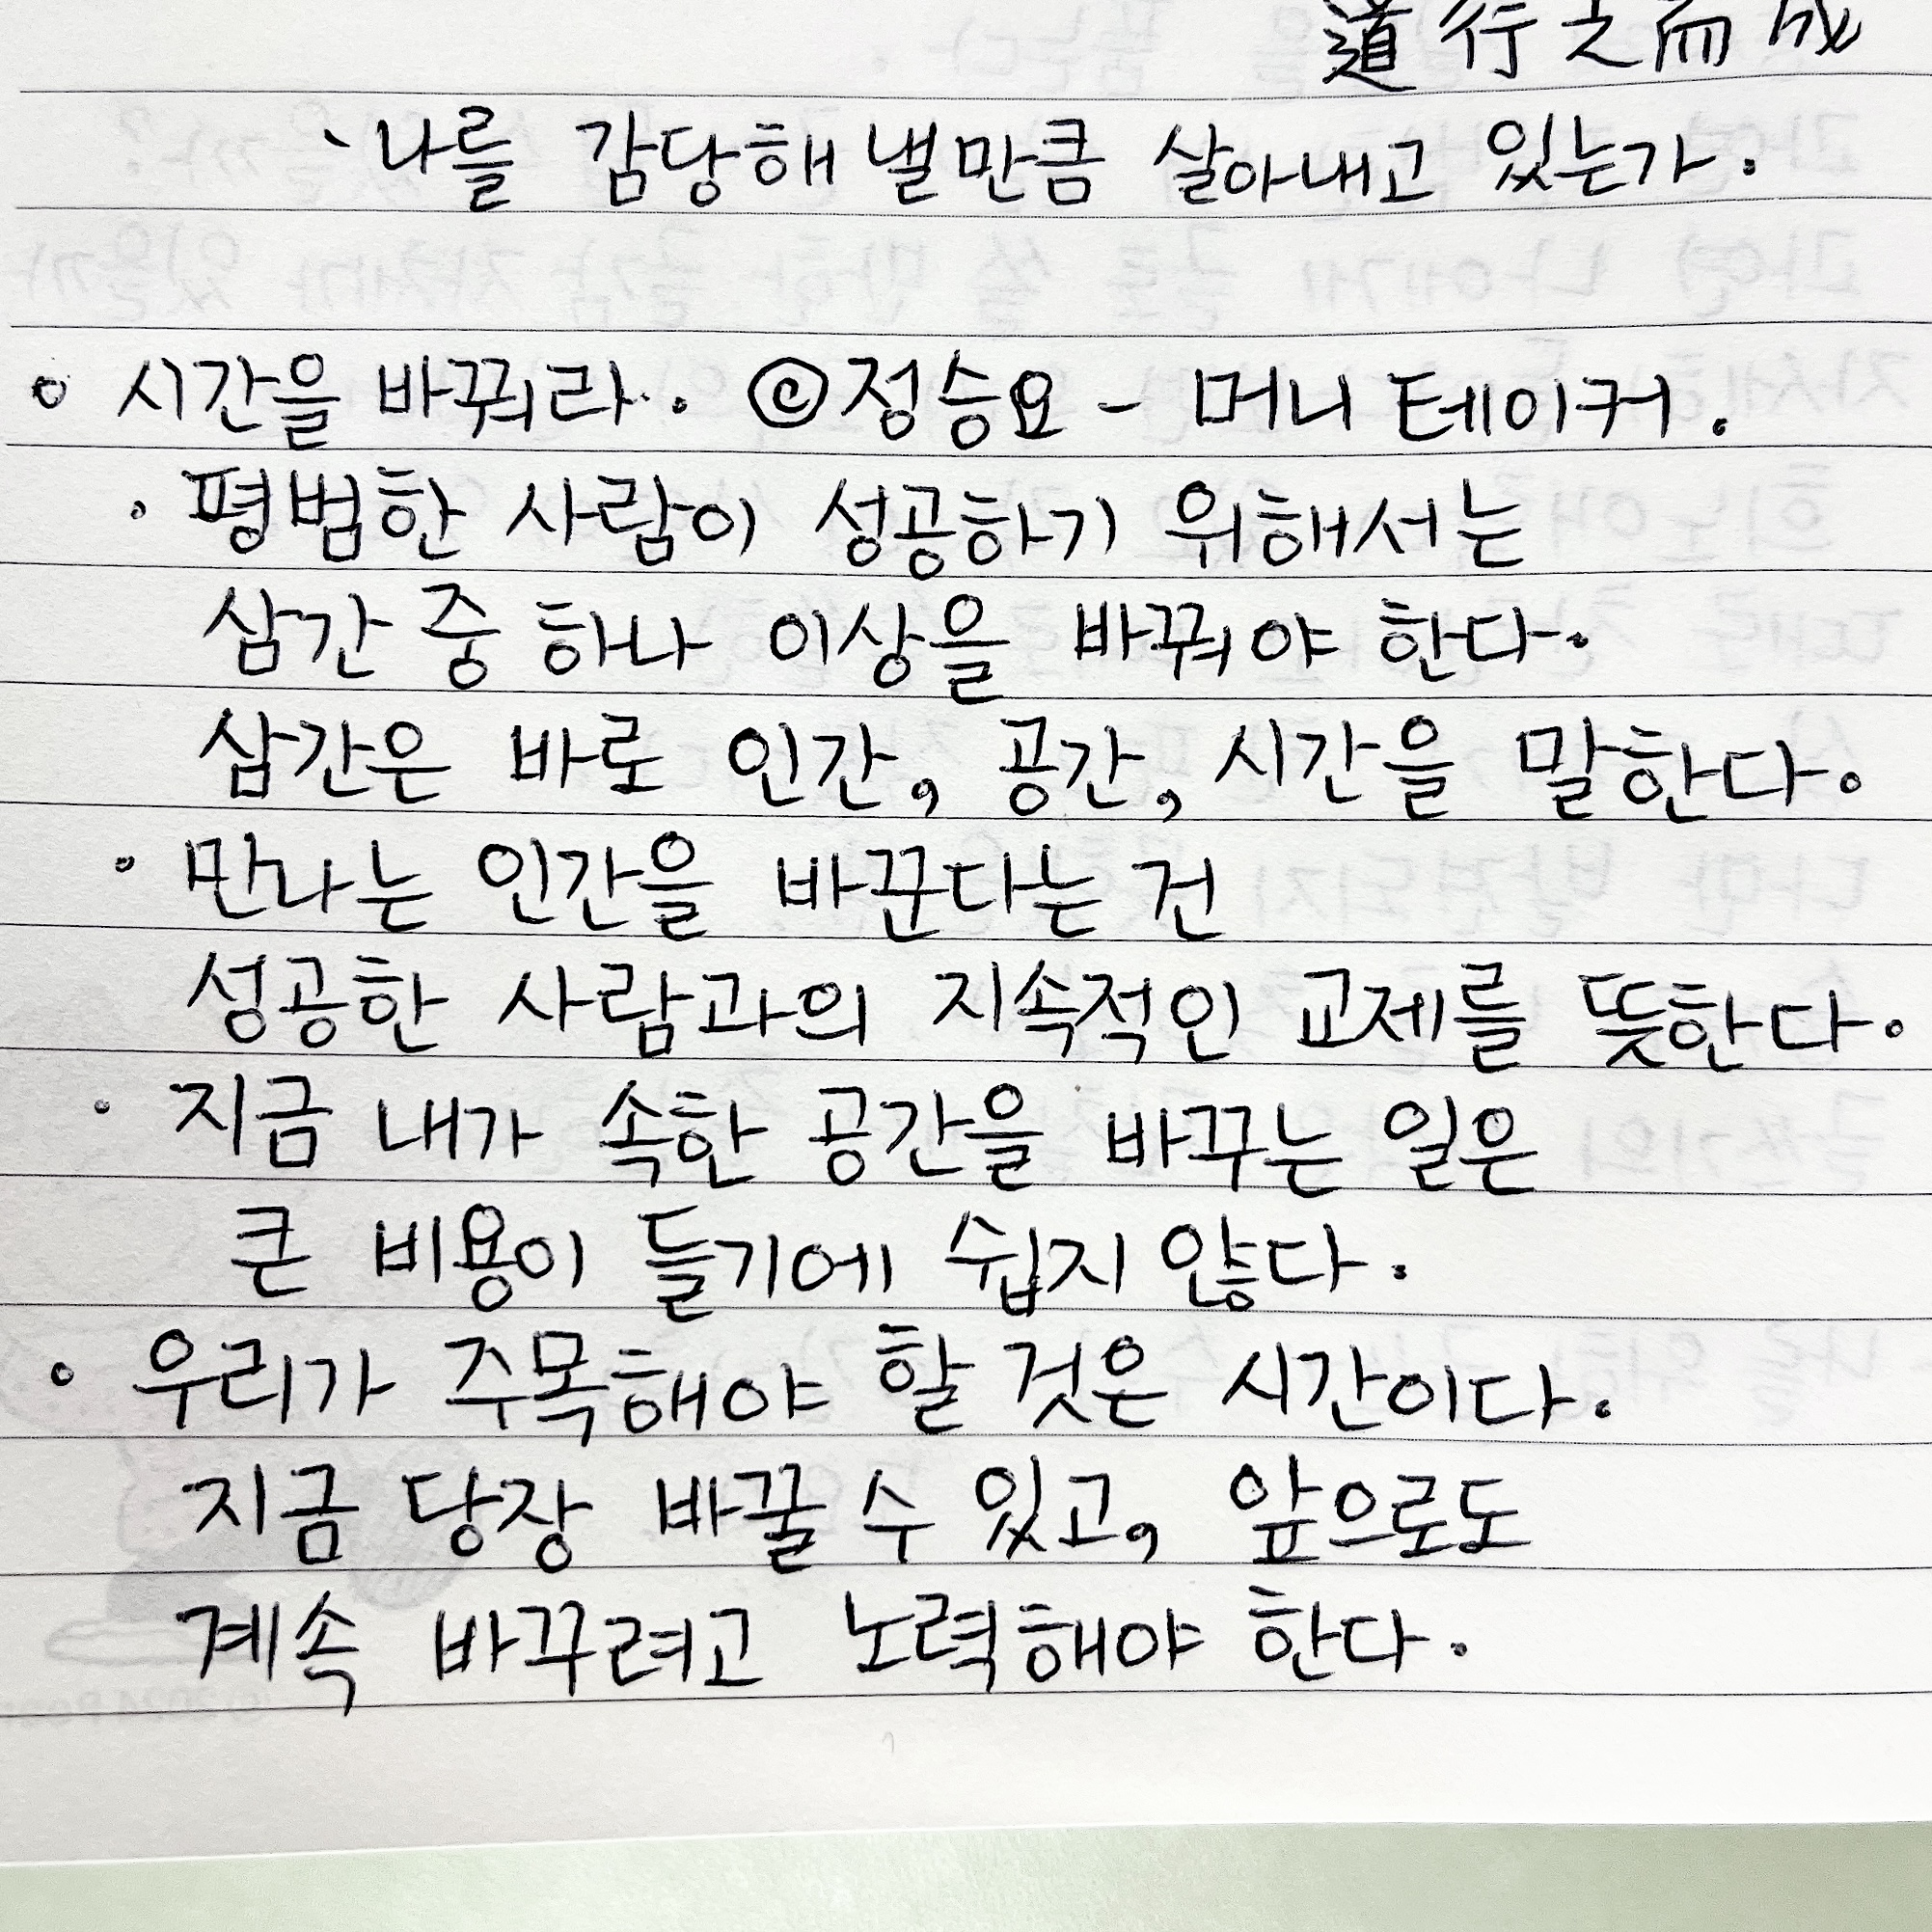 道行之而成
、나를 감당해 낼만큼 살아내고 있는가.
。시간을 바꿔라. ©정승요 - 머니 테이커.
· 평범한 사람이 성공하기 위해서는
삼간 중 하나 이상을 바꿔야 한다.
삼간은 바로 인간, 공간, 시간을 말한다.
· 만나는 인간을 바꾼다는 건
성공한 사람과의 지속적인 교제를 뜻한다.
· 지금 내가 속한 공간을 바꾸는 일은
큰 비용이 들기에 쉽지 않다.
· 우리가 주목해야 할 것은 시간이다.
지금 당장 바꿀 수 있고, 앞으로도
계속 바꾸려고 노력해야 한다.